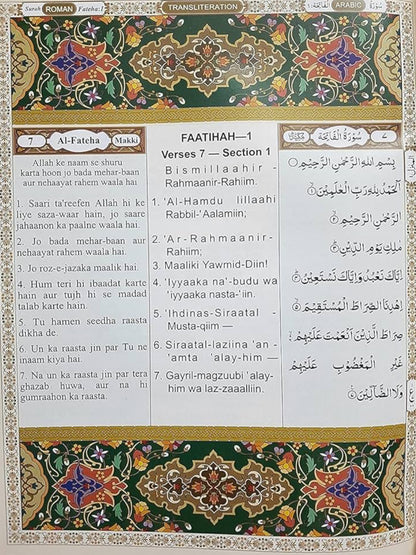 Surah ROMAN Fateha:1
TRANSLITERATION
الفاتحة ١ ARABIC سُوْرَة
7 Al-Fateha Makki
Allah ke naam se shuru
karta hoon jo bada mehar-baan
aur nehaayat rahem waala hai
1. Saari ta'reefen Allah hi ke
liye saza-waar hain, jo saare
jahaanon ka paalne waala hai.
2. Jo bada mehar-baan aur
nehaayat rahem waala hai.
3. Jo roz-e-jazaka maalik hai.
4. Hum teri hi ibaadat karte
hain aur tujh hi se madad
talab karte hain.
5. Tu hamen seedha raasta
dikha de.
6. Un ka raasta jin par Tu ne
inaam kiya hai.
7. Na un ka raasta jin par tera
ghazab huwa, aur na hi
gumraahon ka raasta.
FAATIHAH—1
Verses 7 — Section 1
Bismillaahir -
Rahmaanir-Rahiim.
1. 'Al-Hamdu lillaahi
Rabbil-'Aalamiin;
2. 'Ar-Rahmaanir-
Rahiim;
3. Maaliki Yawmid-Diin!
4. 'Iyyaaka na'-budu wa
'iyyaaka nasta-'iin.
5. 'Ihdinas-Siraatal -
Musta-qiim —
6. Siraatal-laziina 'an -
'amta 'alay-him —
7. Gayril-magzuubi 'alay-
him wa laz-zaaalliin.
٧ سُوْرَةُ الْفَاتِحَةِ
بِسْمِ اللهِ الرَّحْمٰنِ الرَّحِيْمِ
اَلْحَمْدُ لِلهِ رَبِّ الْعٰلَمِيْنَ
الرَّحْمٰنِ الرَّحِيْمِ
مٰلِكِ يَوْمِ الدِّيْنِ
اِيَّاكَ نَعْبُدُ وَاِيَّاكَ نَسْتَعِيْنُ
اِهْدِنَا الصِّرَاطَ الْمُسْتَقِيْمَ
صِرَاطَ الَّذِيْنَ اَنْعَمْتَ عَلَيْهِمْ
غَيْرِ الْمَغْضُوْبِ عَلَيْهِمْ
وَلَا الضَّآلِّيْنَ